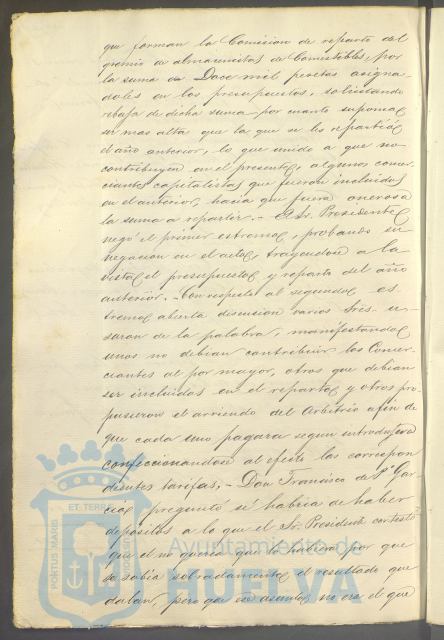 que forman la Comision de reparto del
gremio de almacenistas de Comestibles, por
la suma de Doce mil pesetas asigna-
doles en los presupuestos, solicitando
rebaja de dicha suma por cuanto suponia
ser mas alta que la que se les repartió
el año anterior, lo que unido a que no
contribuyen en el presente, algunos comer
ciantes capitalistas que fueron incluidos
en el anterior, hacia que fuera onerosa
la suma a repartir.- El Sr. Presidente
negó el primer estremo, probando su
negacion en el acto, trayendose a la
vista el presupuesto y reparto del año
anterior.- Con respecto al segundo es
tremo abierta discusion varios Sres. u-
saron de la palabra, manifestando
unos no debian contribuir los Comer
ciantes al por mayor, otros que debian
ser incluidos en el reparto y otros pro-
pusieron el arriendo del Arbitrio afin de
que cada uno pagara segun introdujera
confeccionandose al efecto las correspon
dientes tarifas.- Don Francisco de P. Gar
cia preguntó si habria de haber
depósitos a lo que el Sr. Presidente contestó
que el no queria que lo hubiera por que
se sabia sobradamente el resultado que
daban, pero que ese asunto no era el que
PORTUS MARIS ET TERRAE
Ayuntamiento de
HUELVA